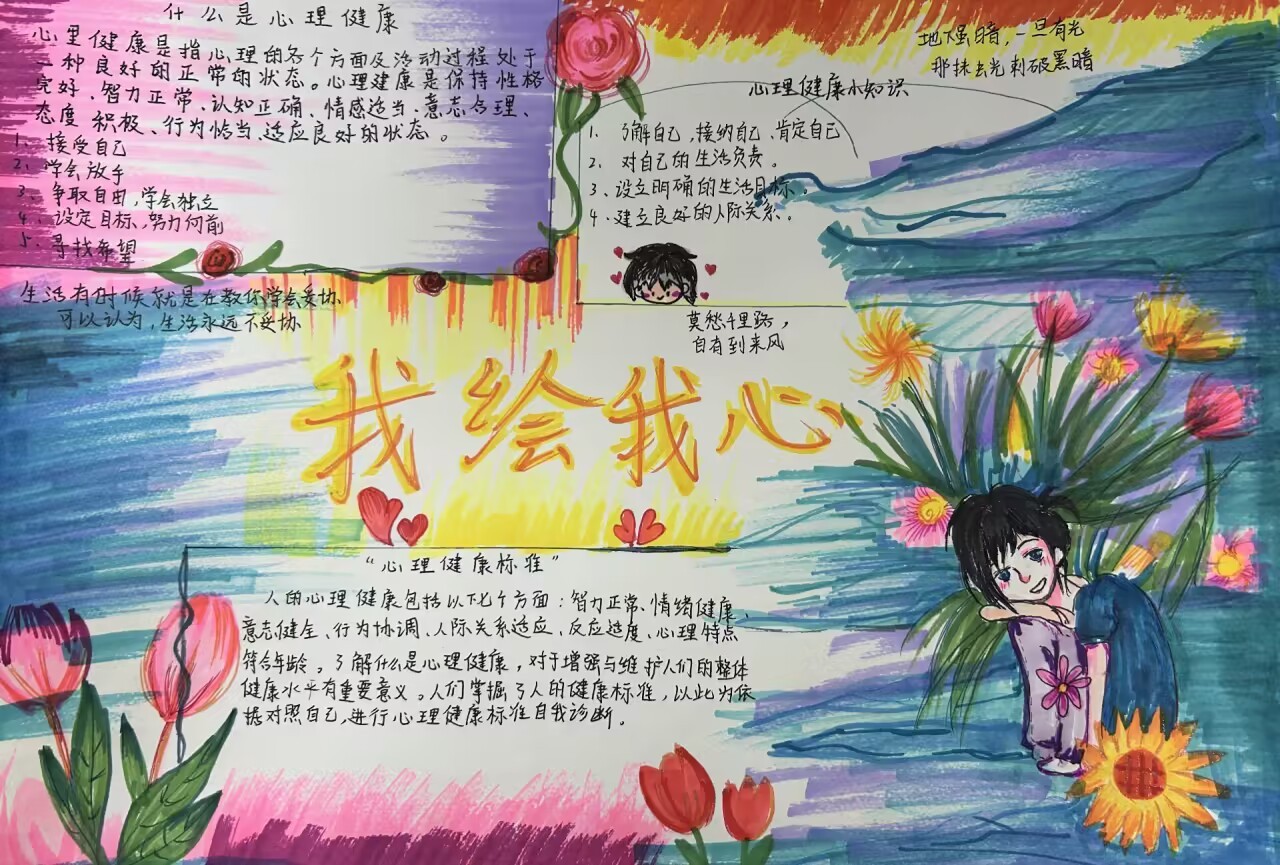 什么是心理健康
心里健康是指心理的各个方面及活动过程处于
一种良好的正常的状态。心理建康是保持性格
完好、智力正常、认知正确、情感适当、意志合理、
态度积极、行为恰当、适应良好的状态。
1、接受自己
2、学会放手
3、争取自由,学会独立
4、设定目标,努力向前
5、寻找希望
生活有时候就是在教你学会妥协
可以认为,生活永远不妥协
地下虽暗,一旦有光
那抹去光刺破黑暗
心理健康小知识
1. 了解自己,接纳自己,肯定自己
2. 对自己的生活负责。
3、设立明确的生活目标。
4. 建立良好的人际关系。
莫愁千里路,
自有到来风
我绘我心
“心理健康标准”
人的心理健康包括以下七个方面:智力正常、情绪健康、
意志健全、行为协调、人际关系适应、反应适度、心理特点
符合年龄。了解什么是心理健康,对于增强与维护人们的整体
健康水平有重要意义。人们掌握了人的健康标准,以此为依
据对照自己,进行心理健康标准自我诊断。